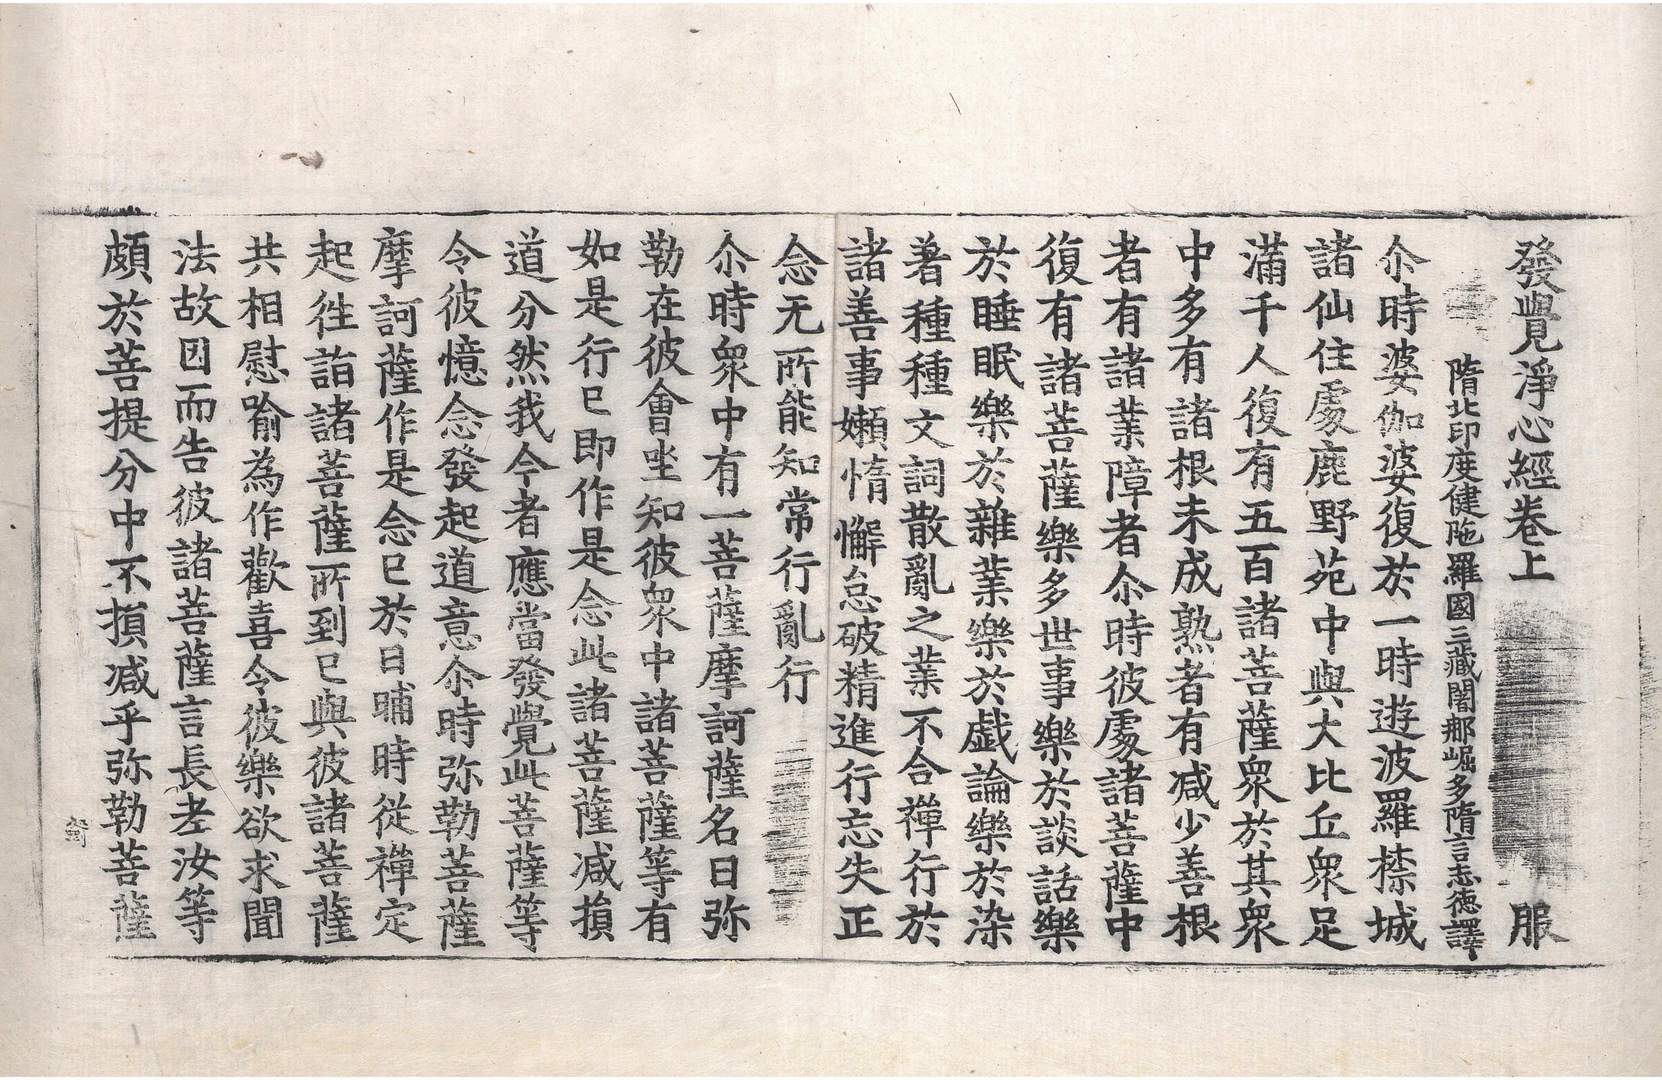 發覺淨心經卷上 服
隋北印度健陁羅國三藏闍那崛多隋言志德譯
尒時婆伽婆復於一時遊波羅㮈城
諸仙住處鹿野苑中與大比丘衆足
滿千人復有五百諸菩薩衆於其衆
中多有諸根未成熟者有減少善根
者有諸業障者尒時彼處諸菩薩中
復有諸菩薩樂多世事樂於談話樂
於睡眠樂於雜業樂於戱論樂於染
著種種文詞散亂之業不合禪行於
諸善事嬾惰懈怠破精進行忘失正
念无所能知常行亂行
尒時衆中有一菩薩摩訶薩名曰弥
勒在彼會坐知彼衆中諸菩薩等有
如是行已即作是念此諸菩薩減損
道分然我今者應當發覺此菩薩等
令彼憶念發起道意尒時弥勒菩薩
摩訶薩作是念已於日晡時從禪定
起徃詣諸菩薩所到已與彼諸菩薩
共相慰喻為作歡喜令彼樂欲求聞
法故因而告彼諸菩薩言長老汝等
頗於菩提分中不損減乎弥勒菩薩